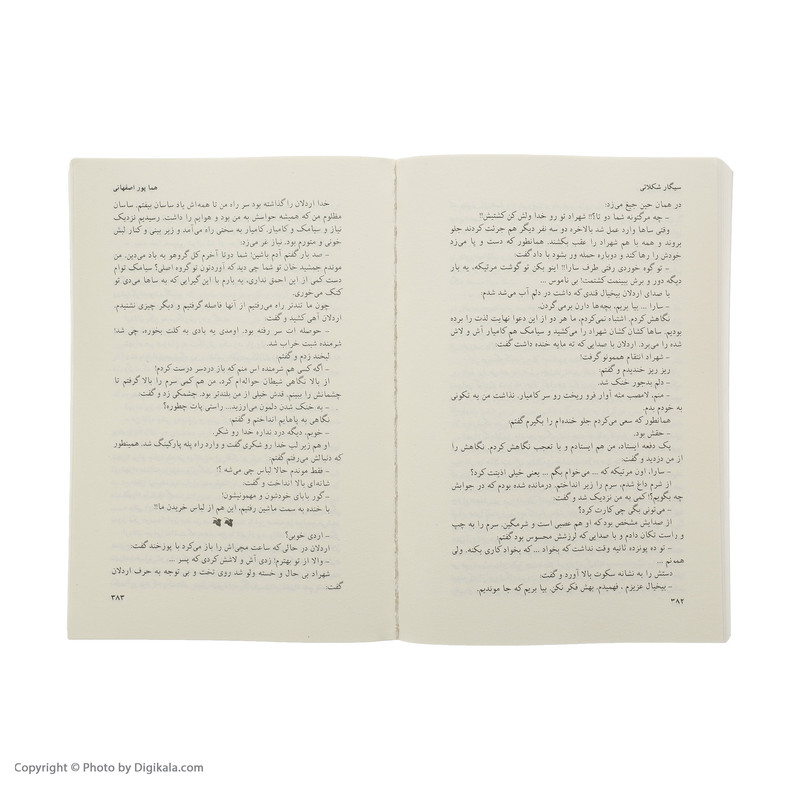 سیگار شکلاتی
در همان حین جیغ می‌زد:
– چه مرگتونه شما دو تا؟!! شهراد تو رو خدا ولش کن کشتیش!!
وقتی ساها وارد عمل شد بالاخره دو سه نفر دیگر هم جرئت کردند جلو
بروند و همه با هم شهراد را عقب بکشند. همانطور که دست و پا می‌زد
خودش را رها کند و دوباره حمله ور بشود با داد گفت:
– تو گوه خوردی رفتی طرف سارا!! اینو بکن تو گوشت مرتیکه، یه بار
دیگه دور و برش ببینمت کشتمت! بی ناموس ...
با صدای اردلان بیخیال قندی که داشت در دلم آب می‌شد شدم:
– سارا ... بیا بریم، بچه‌ها دارن می‌برنش.
نگاهش کردم. اشتباه نمی‌کردم. ما هر دو از این دعوا نهایت لذت را برده
بودیم. ساها کشان کشان شهراد را می‌کشید و سیامک هم کامیار آش و لاش
شده را می‌برد. اردلان با صدایی که ته مایه خنده داشت گفت:
– شهراد انتقام هممونو گرفت!
ریز ریز خندیدم و گفتم:
– دلم بدجور خنک شد.
– منم، لامصب مثه آوار فرو ریخت رو سر کامیار. نذاشت من یه تکونی
به خودم بدم.
همانطور که سعی می‌کردم جلو خنده‌ام را بگیرم گفتم:
– حقش بود.
یک دفعه ایستاد، من هم ایستادم و با تعجب نگاهش کردم. نگاهش را
از من دزدید و گفت:
– سارا، اون مرتیکه که ... می‌خوام بگم ... یعنی خیلی اذیتت کرد؟
از شرم داغ شدم، سرم را زیر انداختم. درمانده شده بودم که در جوابش
چه بگویم؟! کمی به من نزدیک شد و گفت:
– می‌تونی بگی چی کارت کرد؟
از صدایش مشخص بود که او هم عصبی است و شرمگین. سرم را به چپ
و راست تکان دادم و با صدایی که لرزشش محسوس بود گفتم:
– تو ده پونزده ثانیه وقت نداشت که بخواد ... که بخواد کاری بکنه. ولی
همه‌نم ...
دستش را به نشانه سکوت بالا آورد و گفت:
– بیخیال عزیزم ، فهمیدم. بهش فکر نکن. بیا بریم که جا موندیم.
۳۸۲
هما پور اصفهانی
خدا اردلان را گذاشته بود سر راه من تا همه‌اش یاد ساسان بیفتم. ساسان
مظلوم من که همیشه حواسش به من بود و هوایم را داشت. رسیدیم نزدیک
نیاز و سیامک و کامیار. کامیار به سختی راه می‌آمد و زیر بینی و کنار لبش
خونی و متورم بود. نیاز غر می‌زد:
– صد بار گفتم آدم باشین! شما دوتا آخرم کل گروهو به باد می‌دین. من
موندم جمشید خان تو شما چی دید که آوردتون تو گروه اصلی؟ سیامک توام
دست کمی از این احمق نداری، یه بارم با این گیرایی که به ساها می‌دی تو
کتک می‌خوری.
چون ما تندتر راه می‌رفتیم از آنها فاصله گرفتیم و دیگر چیزی نشنیدم.
اردلان آهی کشید و گفت:
– حوصله ات سر رفته بود. اومدی یه بادی به کلت بخوره، چی شد!
شرمنده شبت خراب شد.
لبخند زدم و گفتم:
– اگه کسی هم شرمنده اس منم که باز دردسر درست کردم!
از بالا نگاهی شیطان حواله‌ام کرد. من هم کمی سرم را بالا گرفتم تا
چشمانش را ببینم. قدش خیلی از من بلندتر بود. چشمکی زد و گفت:
– به خنک شدن دلمون می‌ارزید... راستی پات چطوره؟
نگاهی به پاهایم انداختم و گفتم:
– خوبم. دیگه درد نداره خدا رو شکر.
او هم زیر لب خدا رو شکری گفت و وارد راه پله پارکینگ شد. همینطور
که دنبالش می‌رفتم گفتم:
– فقط موندم حالا لباس چی می‌شه ؟!
شانه‌ای بالا انداخت و گفت:
– گور بابای خودشون و مهمونیشون!
با خنده به سمت ماشین رفتیم، این هم از لباس خریدن ما!!
– اردی خوبی؟
اردلان در حالی که ساعت مچی‌اش را باز می‌کرد با پورخند گفت:
– والا از تو بهترم! زدی آش و لاشش کردی که پسر ...
شهراد بی حال و خسته ولو شد روی تخت و بی توجه به حرف اردلان
گفت:
۳۸۳
Copyright © Photo by Digikala.com